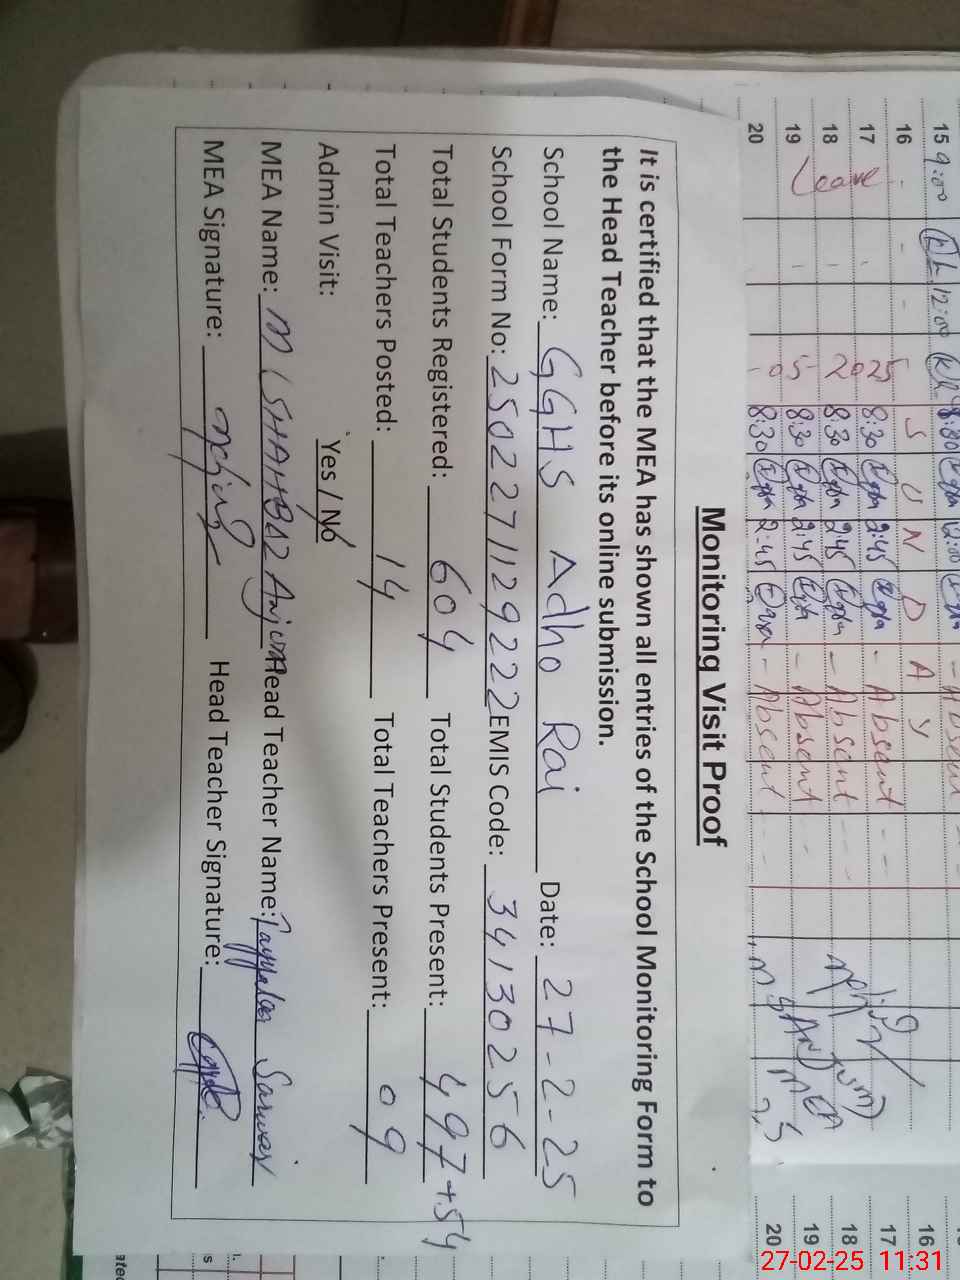 Monitoring Visit Proof
It is certified that the MEA has shown all entries of the School Monitoring Form to
the Head Teacher before its online submission.
School Name: GGHS Adho Rai Date: 27-2-25
School Form No: 2502271129222 EMIS Code: 34130256
Total Students Registered: 604 Total Students Present: 497+54
Total Teachers Posted: 14 Total Teachers Present: 09
Admin Visit: Yes / No
MEA Name: M SHAHBAZ Anjum Head Teacher Name: Tayyaba Sarwar
MEA Signature: Head Teacher Signature:
15 9:00 12:00 12:00 - Absent
16 - - - S U N D A Y 16
17 8:30 2:45 - Absent - - 17
18 Leave 2025 8:30 2:45 - Absent - - - 18
19 05 8:30 2:45 - Absent - - 19
20 8:30 2:45 - Absent - - - 20
MEA
27-02-25 11:31